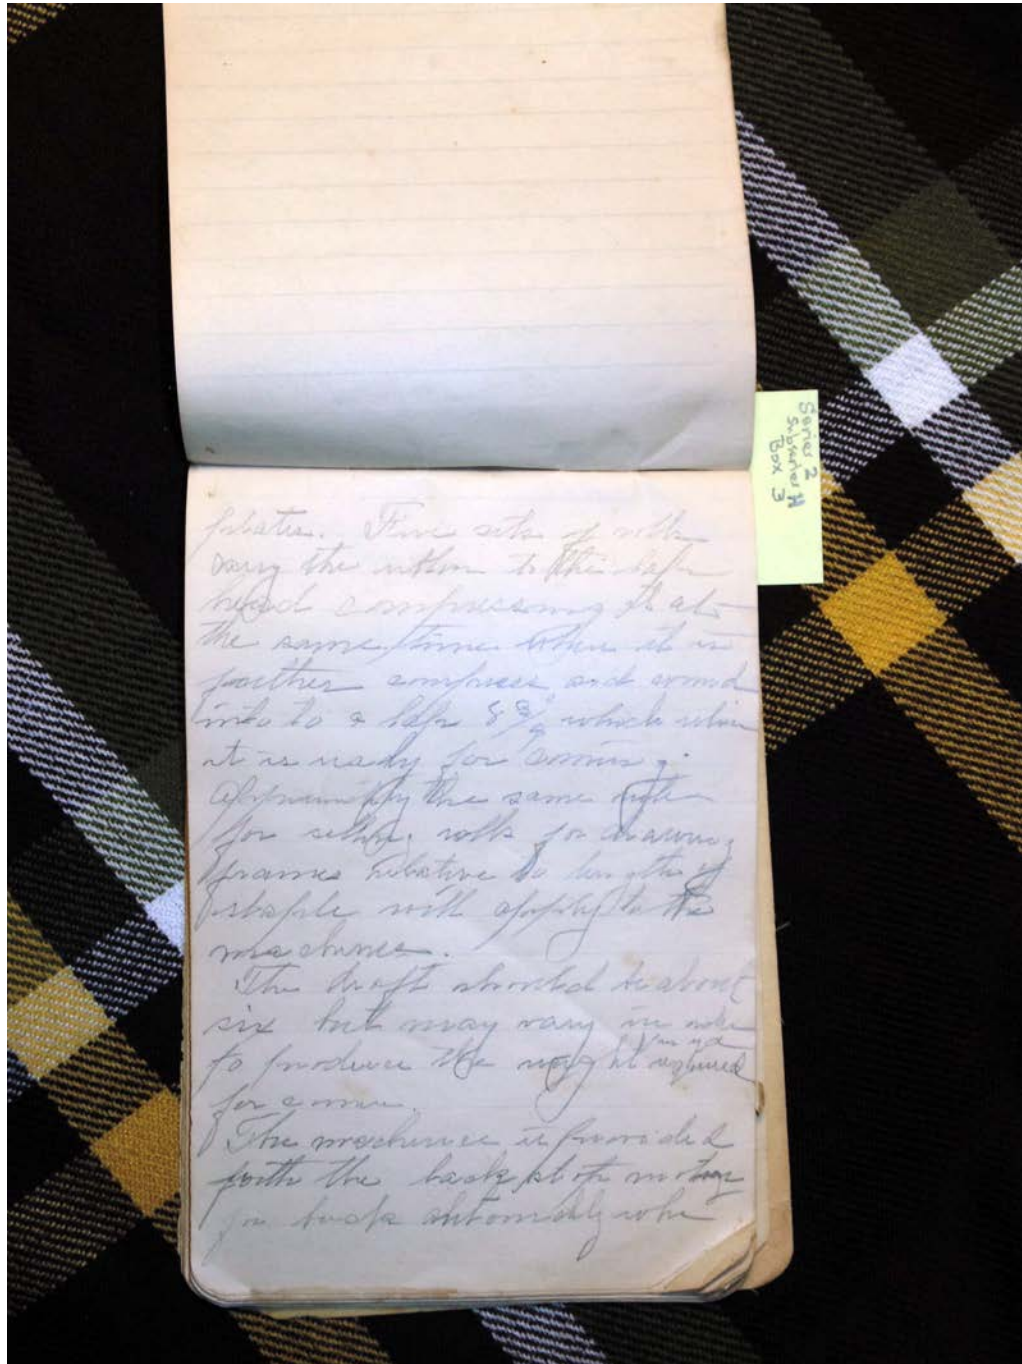 plates. Five sets of rolls
carry the cotton to the lap
head compressing it at
the same time when it is
further compress and wound
into to a lap which when
it is ready for
the same rule
for setting rolls for drawing
frames relative to length of
staple will apply to the
machines.
The draft should be about
six but may vary in
to produce the weight required
for
The machines is provided
with the back stop motion
for back when
Series 2
Subseries H
Box 3